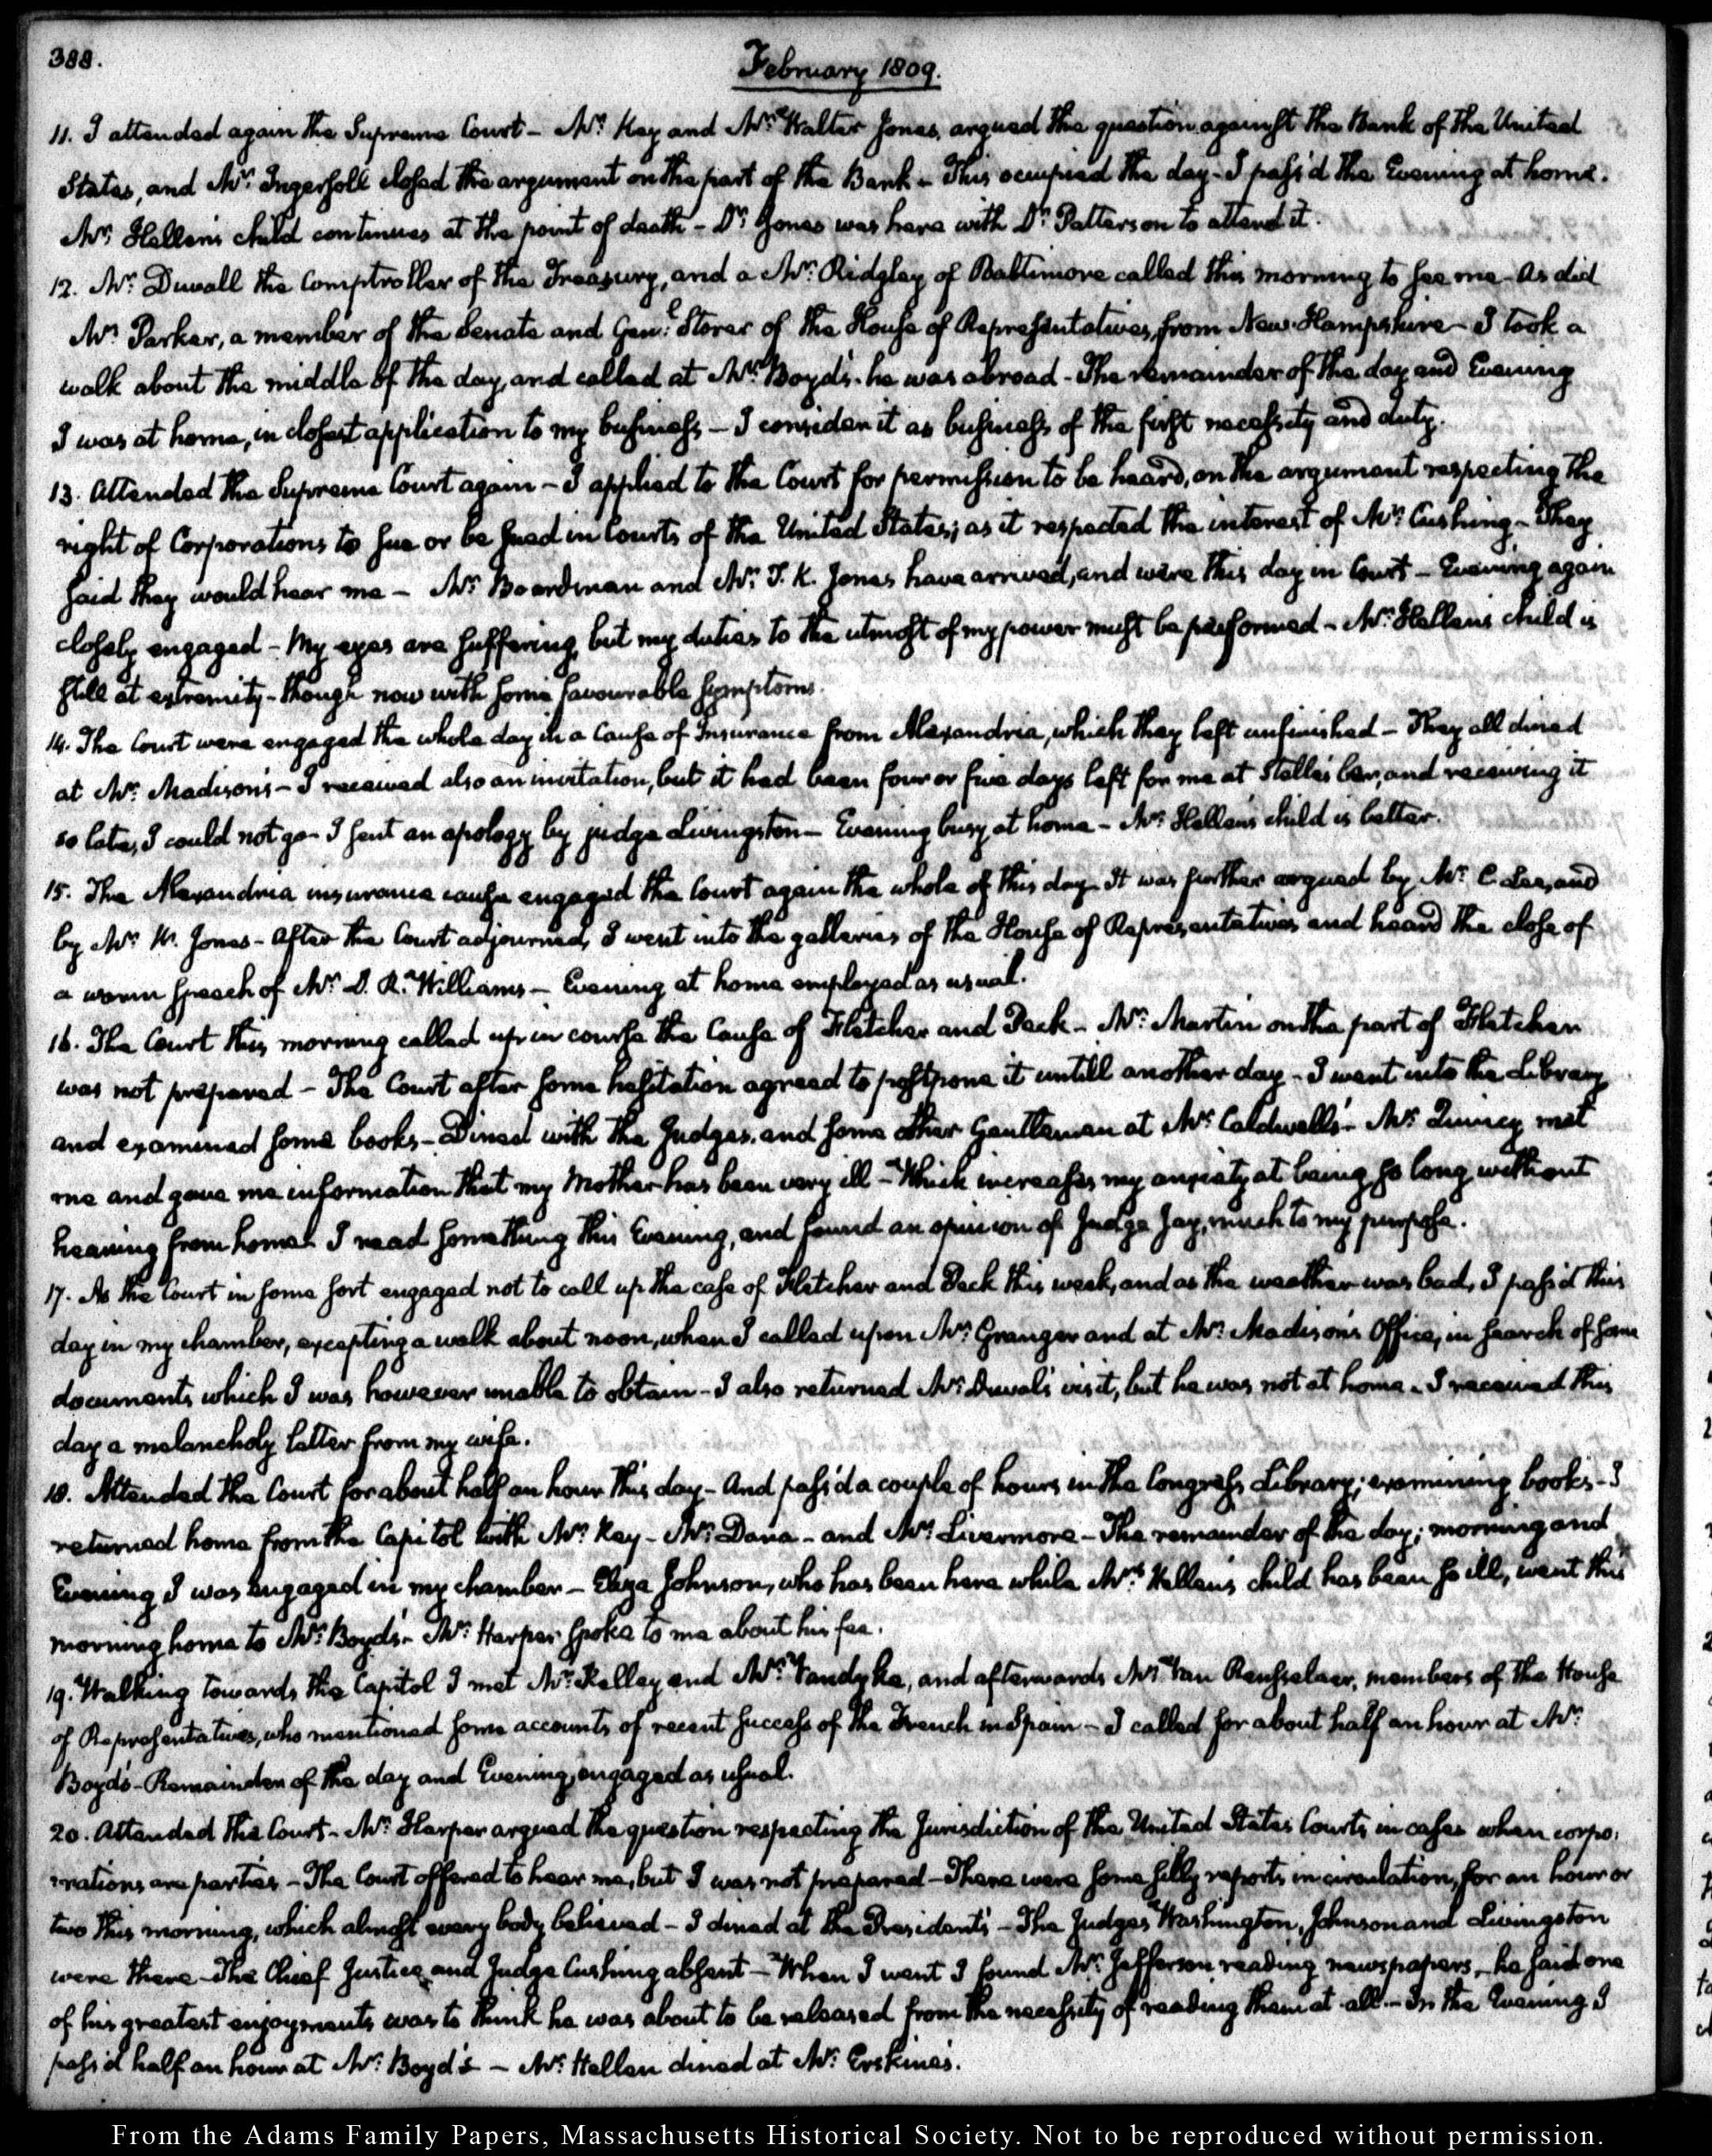 388.
February 1809.
11. I attended again the Supreme Court — Mr. Key and Mr. Walter Jones, argued the question against the Bank of the United
States, and Mr. Ingersoll closed the argument on the part of the Bank — This occupied the day — I pass'd the Evening at home.
Mr. Hellen's child continues at the point of death — Dr. Jones was here with Dr. Patterson to attend it.
12. Mr. Duvall the Comptroller of the Treasury, and a Mr. Ridgley of Baltimore called this morning to see me — As did
Mr. Parker, a member of the Senate and Genl. Storer of the House of Representatives, from New-Hampshire — I took a
walk about the middle of the day, and called at Mr. Boyd's. he was abroad — The remainder of the day and Evening
I was at home, in closest application to my business — I consider it as business of the first necessity and duty.
13. Attended the Supreme Court again — I applied to the Court for permission to be heard, on the argument respecting the
right of Corporations to sue or be sued in Courts of the United States; as it respected the interest of Mr. Cushing — They
said they would hear me — Mr. Boardman and Mr. T. K. Jones have arrived, and were this day in Court — Evening again
closely engaged — My eyes are suffering, but my duties to the utmost of my power must be performed — Mr. Hellen's child is
still at extremity — though now with some favourable symptoms.
14. The Court were engaged the whole day in a Cause of Insurance from Alexandria, which they left unfinished — They all dined
at Mr. Madison's — I received also an invitation, but it had been four or five days left for me at Stelle's bar, and receiving it
so late, I could not go — I sent an apology by judge Livingston — Evening busy at home — Mr. Hellen's child is better.
15. The Alexandria insurance cause engaged the Court again the whole of this day — It was further argued by Mr. C. Lee, and
by Mr. W. Jones — After the Court adjourned, I went into the galleries of the House of Representatives and heard the close of
a warm speech of Mr. D. R. Williams — Evening at home employed as usual.
16. The Court this morning called up in course the Cause of Fletcher and Peck — Mr. Martin on the part of Fletcher
was not prepared — The Court after some hesitation agreed to postpone it untill another day — I went into the Library
and examined some books — Dined with the Judges, and some other Gentlemen at Mr. Caldwell's — Mr. Quincy met
me and gave me information that my Mother has been very ill — Which increases my anxiety at being so long without
hearing from home — I read something this Evening, and found an opinion of Judge Jay, much to my purpose.
17. As the Court in some sort engaged not to call up the case of Fletcher and Peck this week, and as the weather was bad, I pass'd this
day in my chamber, excepting a walk about noon, when I called upon Mr. Granger and at Mr. Madison's Office, in search of some
documents which I was however unable to obtain — I also returned Mr. Duval's visit, but he was not at home. I received this
day a melancholy letter from my wife.
18. Attended the Court for about half an hour this day — And pass'd a couple of hours in the Congress Library; examining books — I
returned home from the Capitol with Mr. Key — Mr. Dana — and Mr. Livermore — The remainder of the day; morning and
Evening I was engaged in my chamber — Eliza Johnson, who has been here while Mrs. Hellen's child has been so ill, went this
morning home to Mr. Boyd's — Mr. Harper spoke to me about his fee.
19. Walking towards the Capitol I met Mr. Kelley and Mr. Vandyke, and afterwards Mr. Van Rensselaer, members of the House
of Representatives, who mentioned some accounts of recent success of the French in Spain — I called for about half an hour at Mr.
Boyd's — Remainder of the day and Evening, engaged as usual.
20. Attended the Court — Mr. Harper argued the question respecting the Jurisdiction of the United States Courts in cases when corpo-
rations are parties — The Court offered to hear me, but I was not prepared — There were some silly reports in circulation, for an hour or
two this morning, which almost every body believed — I dined at the President's — The Judges Washington, Johnson and Livingston
were there — The Chief Justice and Judge Cushing absent — When I went I found Mr. Jefferson reading newspapers, — he said one
of his greatest enjoyments was to think he was about to be released from the necessity of reading them at all — In the Evening I
pass'd half an hour at Mr. Boyd's — Mr. Hellen dined at Mr. Erskine's.
From the Adams Family Papers, Massachusetts Historical Society. Not to be reproduced without permission.